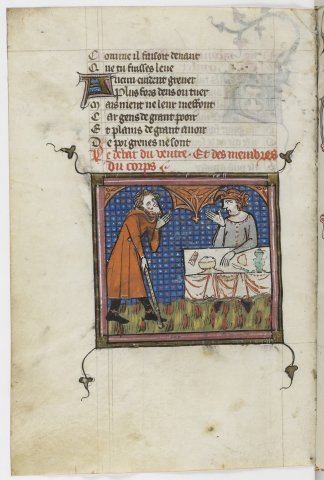 Comme il faisoit deuant
Que tu fuisses leue
Aucun cuident greuer
Plus fors deus ou tuer
Mais nient ne leur meffont
Car gens de grant pooir
Et plains de grant auoir
De poi greues ne sont
De debat du uentre. Et des membres
du corps